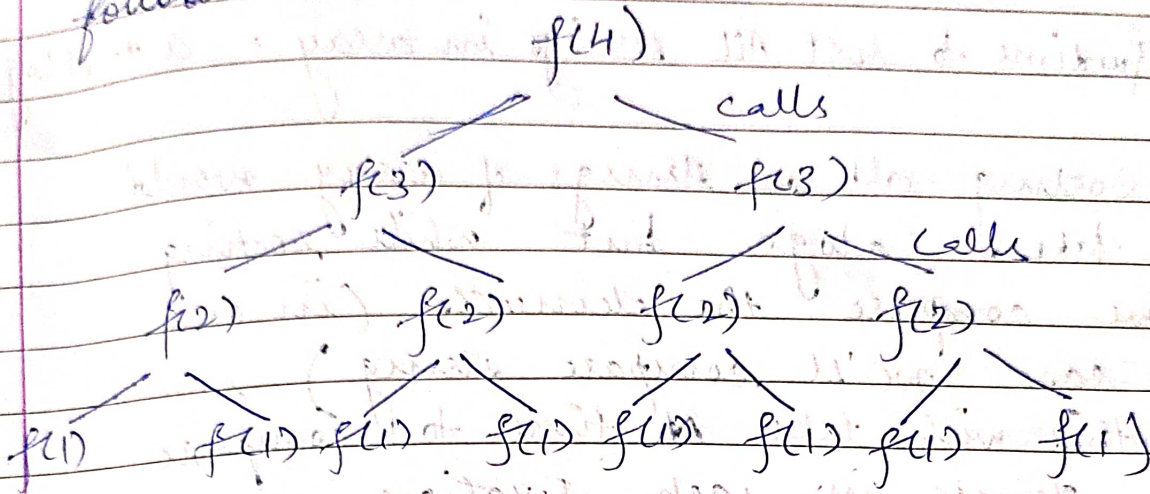 f(4)
calls
f(3) f(3)
calls
f(2) f(2) f(2) f(2)
f(1) f(1) f(1) f(1) f(1) f(1) f(1) f(1)